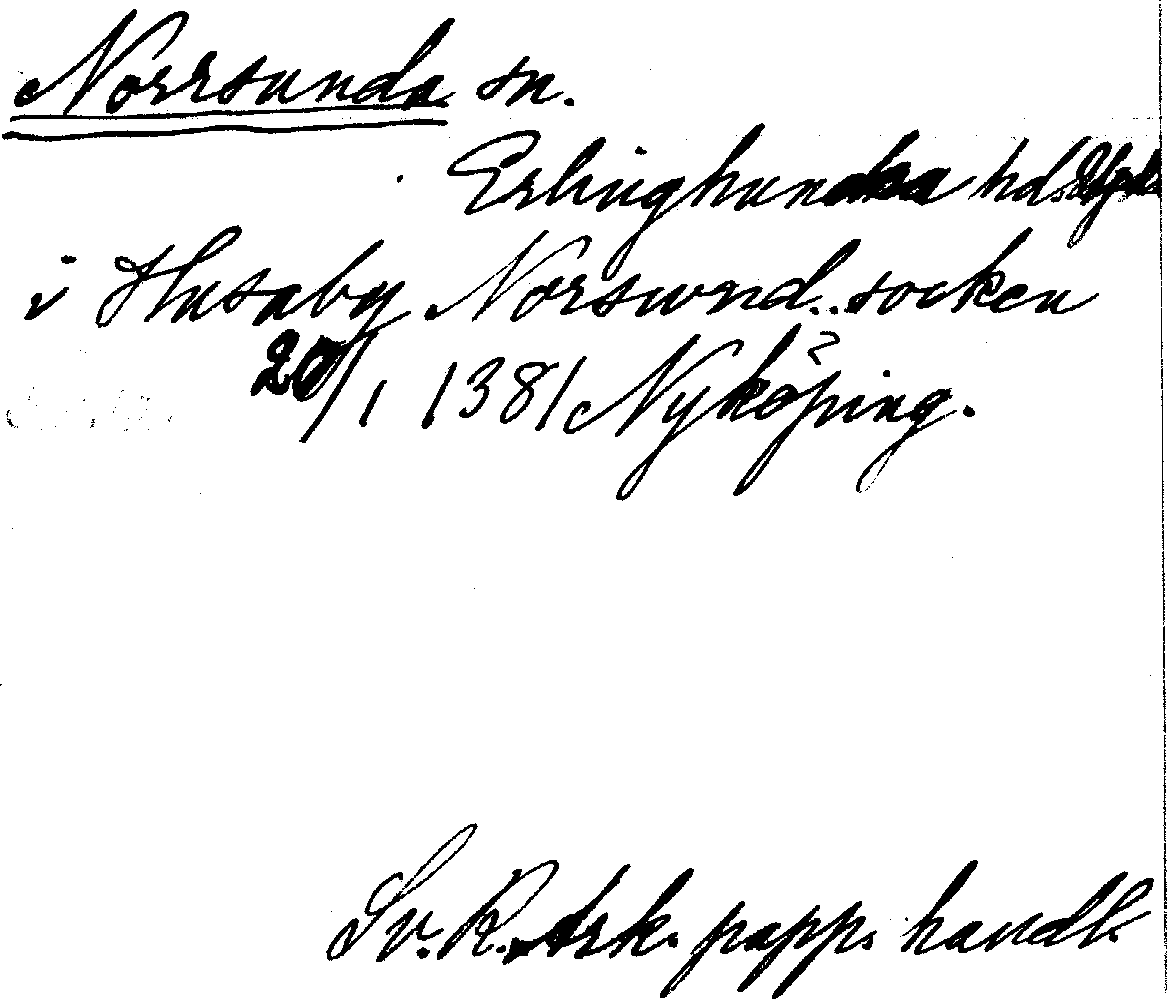 Norrsunda sn.
Erlinghundra hd. Uppl.
i Husaby Norswnd.. socken
20/1 1381 Nyköping.
Sv. R. Ark. papp. handl.